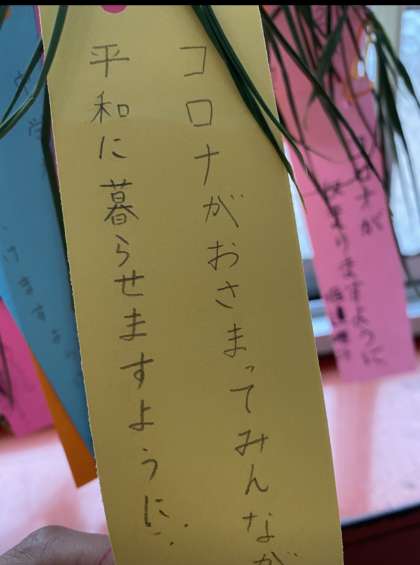 コロナがおさまってみんなが
平和に暮らせますように
コロナが
収まりますように